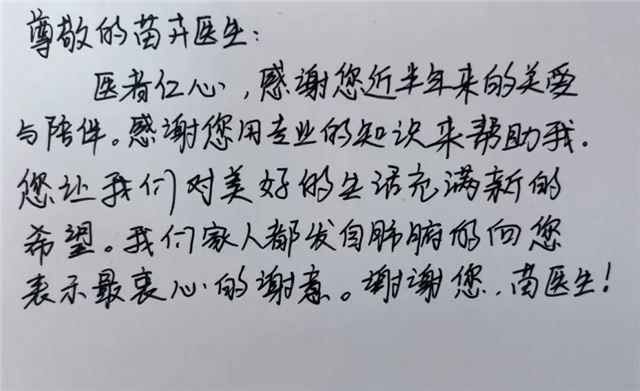 尊敬的苗卉医生：
医者仁心，感谢您近半年来的关爱
与陪伴。感谢您用专业的知识来帮助我。
您让我们对美好的生活充满新的
希望。我们家人都发自肺腑的向您
表示最衷心的谢意。谢谢您，苗医生！